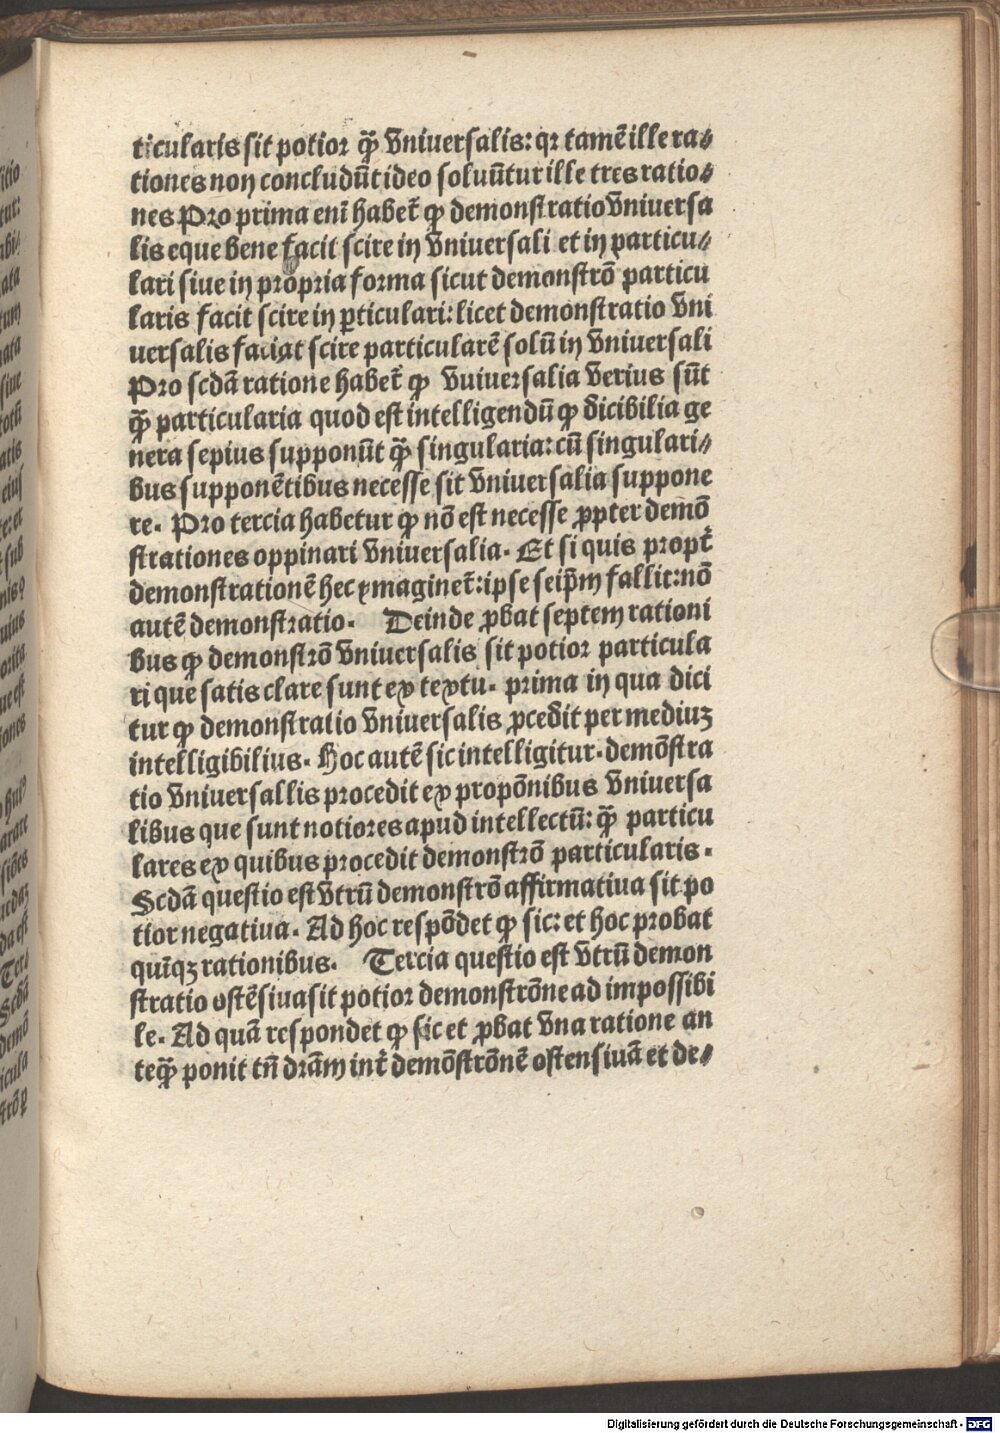 ticularis sit potior q̃ꝫ vniuersalis: qꝛ tamē ille ra⸗
tiones non concludūt ideo soluūtur ille tres ratio⸗
nes Pro prima eni habet̄ ꝙ demonstratio vniuersa
lis eque bene facit scire in vniuersali et in particu⸗
lari siue in propria forma sicut demonstrō particu
laris facit scire in ꝑticulari: licet demonstratio vni
uersalis faciat scire particularē solū in vniuersali
Pro scdā ratione habet̄ ꝙ vuiuersalia verius sūt
q̃ꝫ particularia quod est intelligendū ꝙ dicibilia ge
nera sepius supponūt q̃ꝫ singularia: cū singulari⸗
bus supponētibus necesse sit vniuersalia suppone
re. Pro tercia habetur ꝙ nō est necesse ꝓpter demō
strationes oppinari vniuersalia. Et si quis propt̄
demonstrationē hec ymaginet̄: ipse seip̄m fallit: nō
autē demonstratio. Deinde ꝓbat septem rationi
bus ꝙ demonstrō vniuersalis sit potior particula
ri que satis clare sunt ex textu. prima in qua dici
tur ꝙ demonstratio vniuersalis ꝓcedit per mediuꝫ
intelligibilius. Hoc autē sic intelligitur. demōstra
tio vniuersallis procedit ex propōnibus vniuersa
libus que sunt notiores apud intellectū: q̃ꝫ particu
lares ex quibus procedit demonstrō particularis.
Scdā questio est vtrū demonstrō affirmatiua sit po
tior negatiua. Ad hoc respōdet ꝙ sic: et hoc probat
quīqꝫ rationibus. Tercia questio est vtrū demon
stratio ostēsiua sit potior demonstrōne ad impossibi
le. Ad quā respondet ꝙ sic et ꝓbat vna ratione an
teq̃ꝫ ponit tn̄ drām int̄ demōstrōnē ostensiuā et de⸗
Digitalisierung gefördert durch die Deutsche Forschungsgemeinschaft - DFG